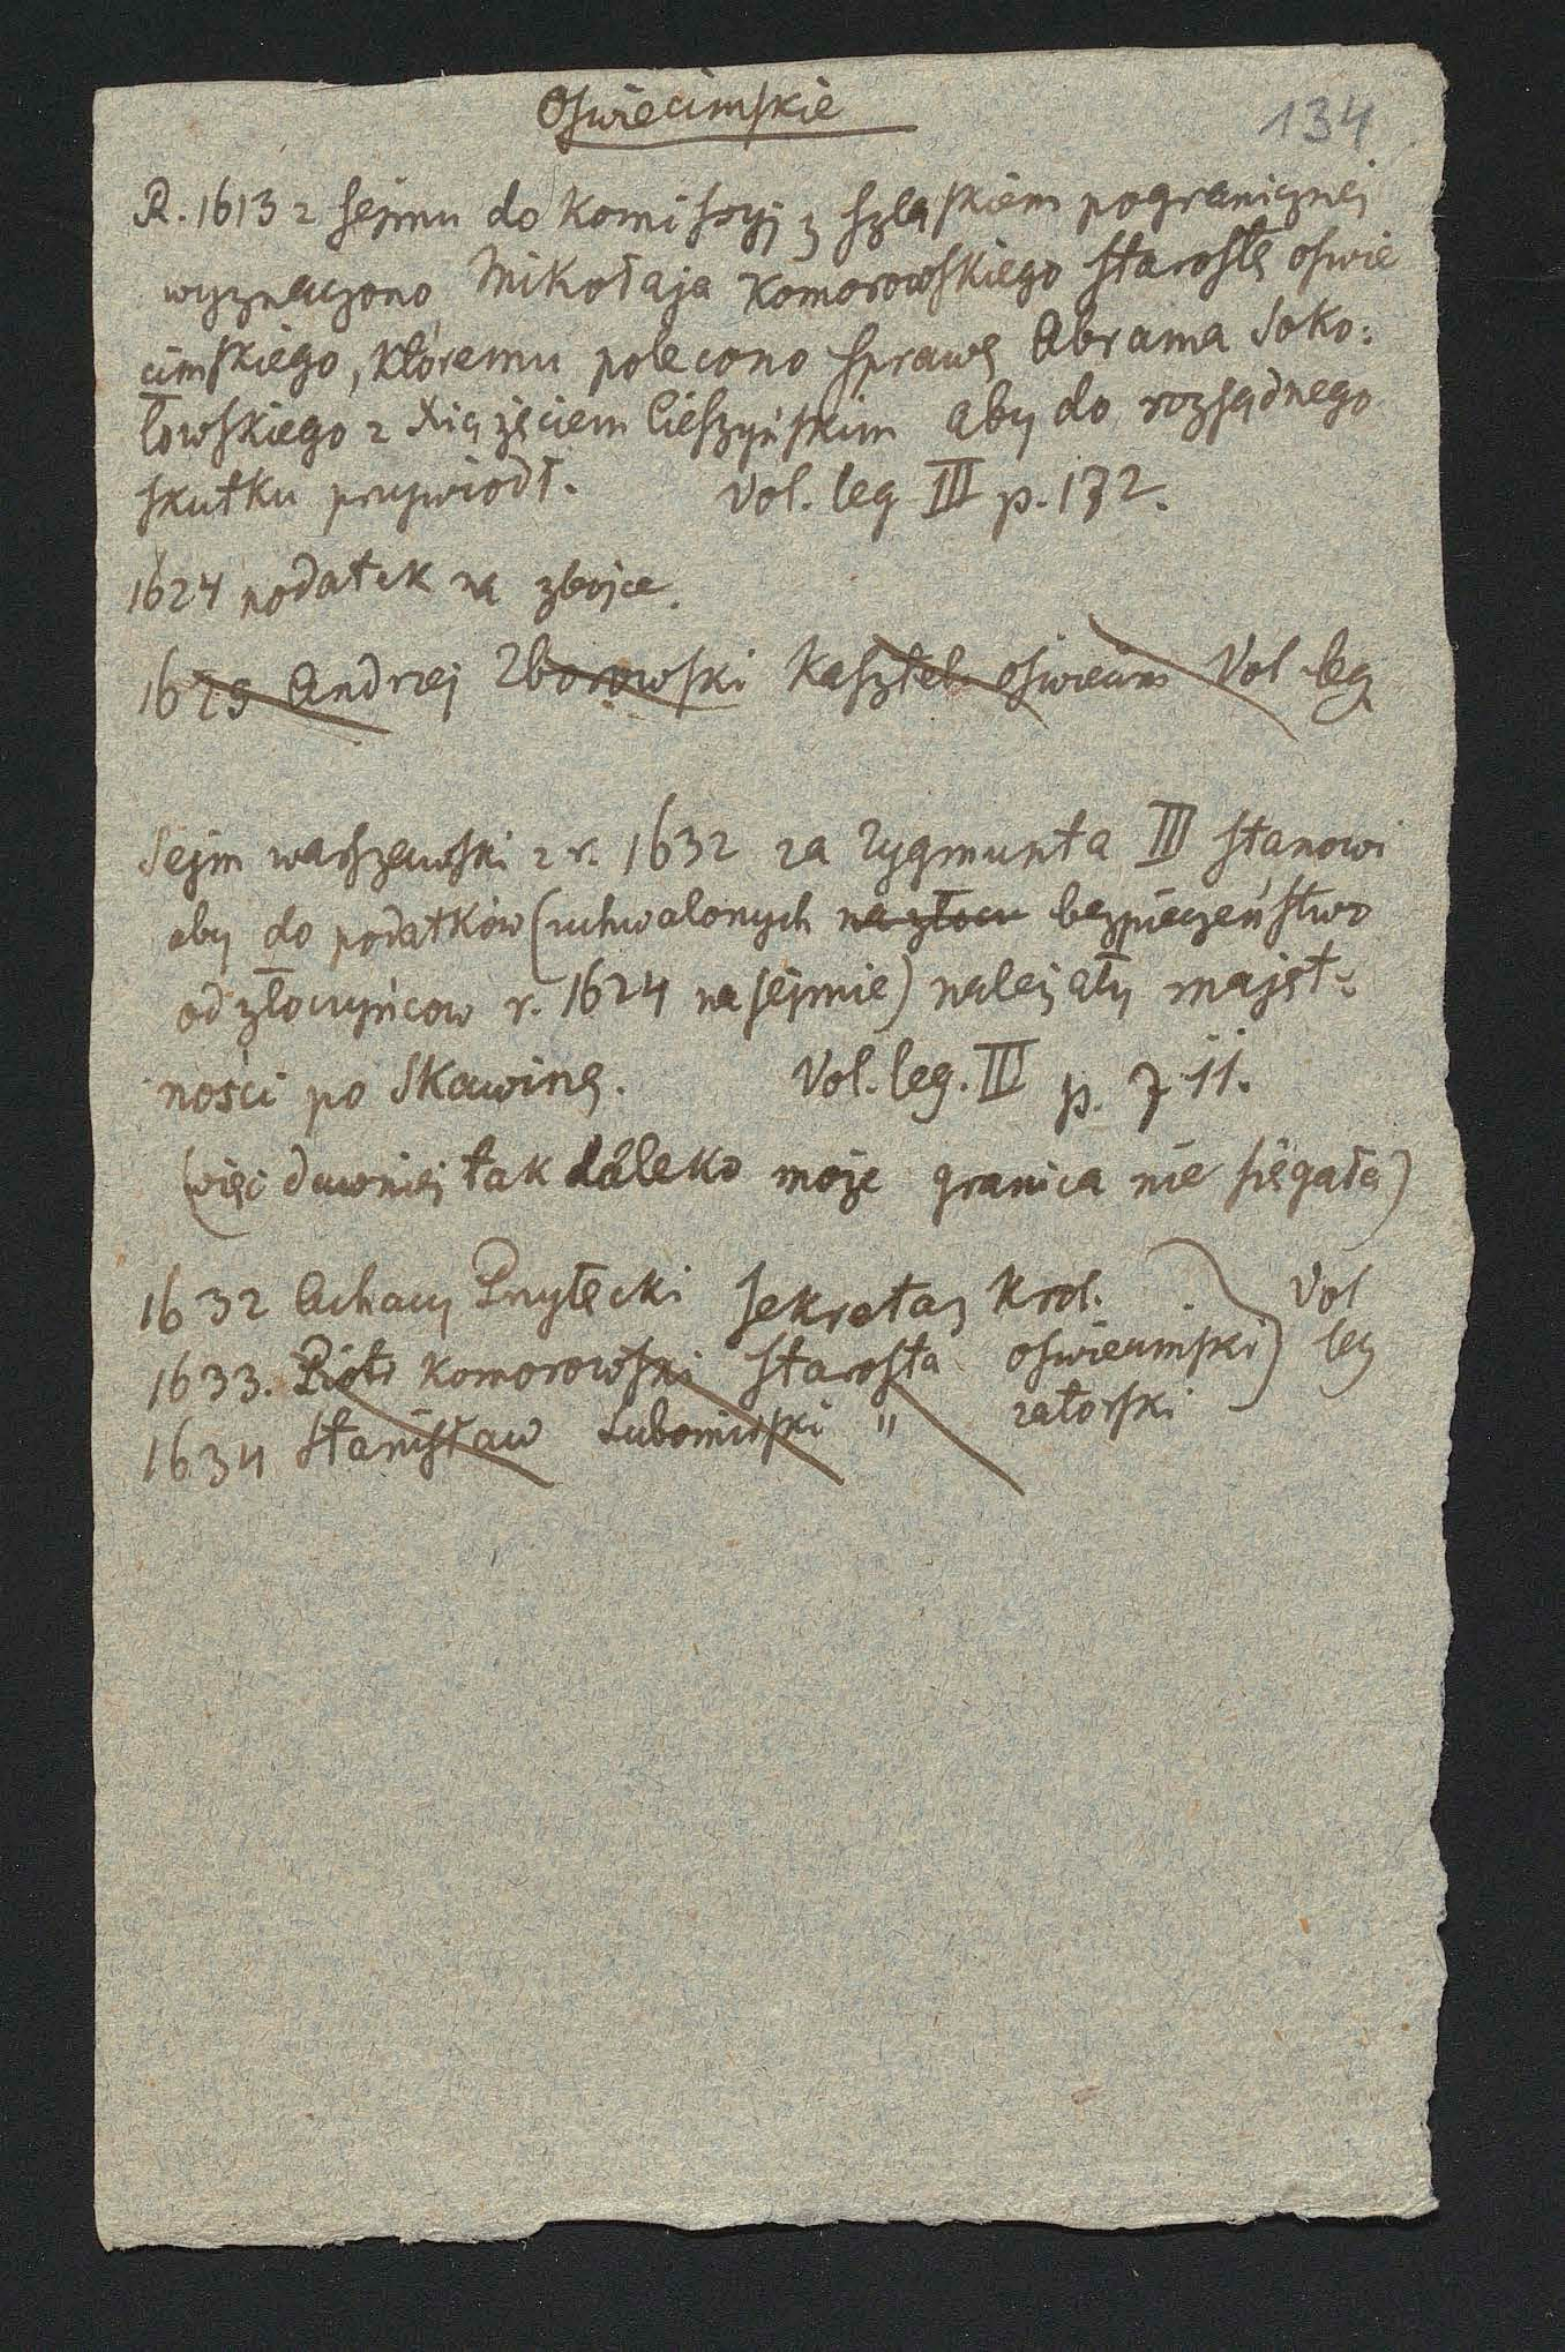 Oświecimskie
134
R. 1613 z sejmu do Komissyj z szląskiem pogranicznej
wyznaczono Mikołaja Komorowskiego starostę oswie
cimskiego, któremu polecono sprawę Abrama Soko:
łowskiego z Xiążęciem Cieszyńskim aby do rozsądnego
skutku przywiodł. Vol. leg III p. 172.
1624 podatek na zbójce.
1629 Andrzej Zborowski Kasztel. oświecim Vol leg
Sejm warszawski z r. 1632 za Zygmunta III stanowi
aby do podatków (uchwalonych na złocz bezpieczeństwo
od złoczyńcow r. 1624 na sejmie) należały majęt:
ności po Skawinę. Vol. leg. III p. 711.
(więc dawniej tak daleko może granica nie sięgała)
1632 Achacy Przyłęcki sekretarz Krol.
1633. Piotr Komorowski starosta oświecimski) Vol leg
1634 Stanisław Lubomirski " zatorski